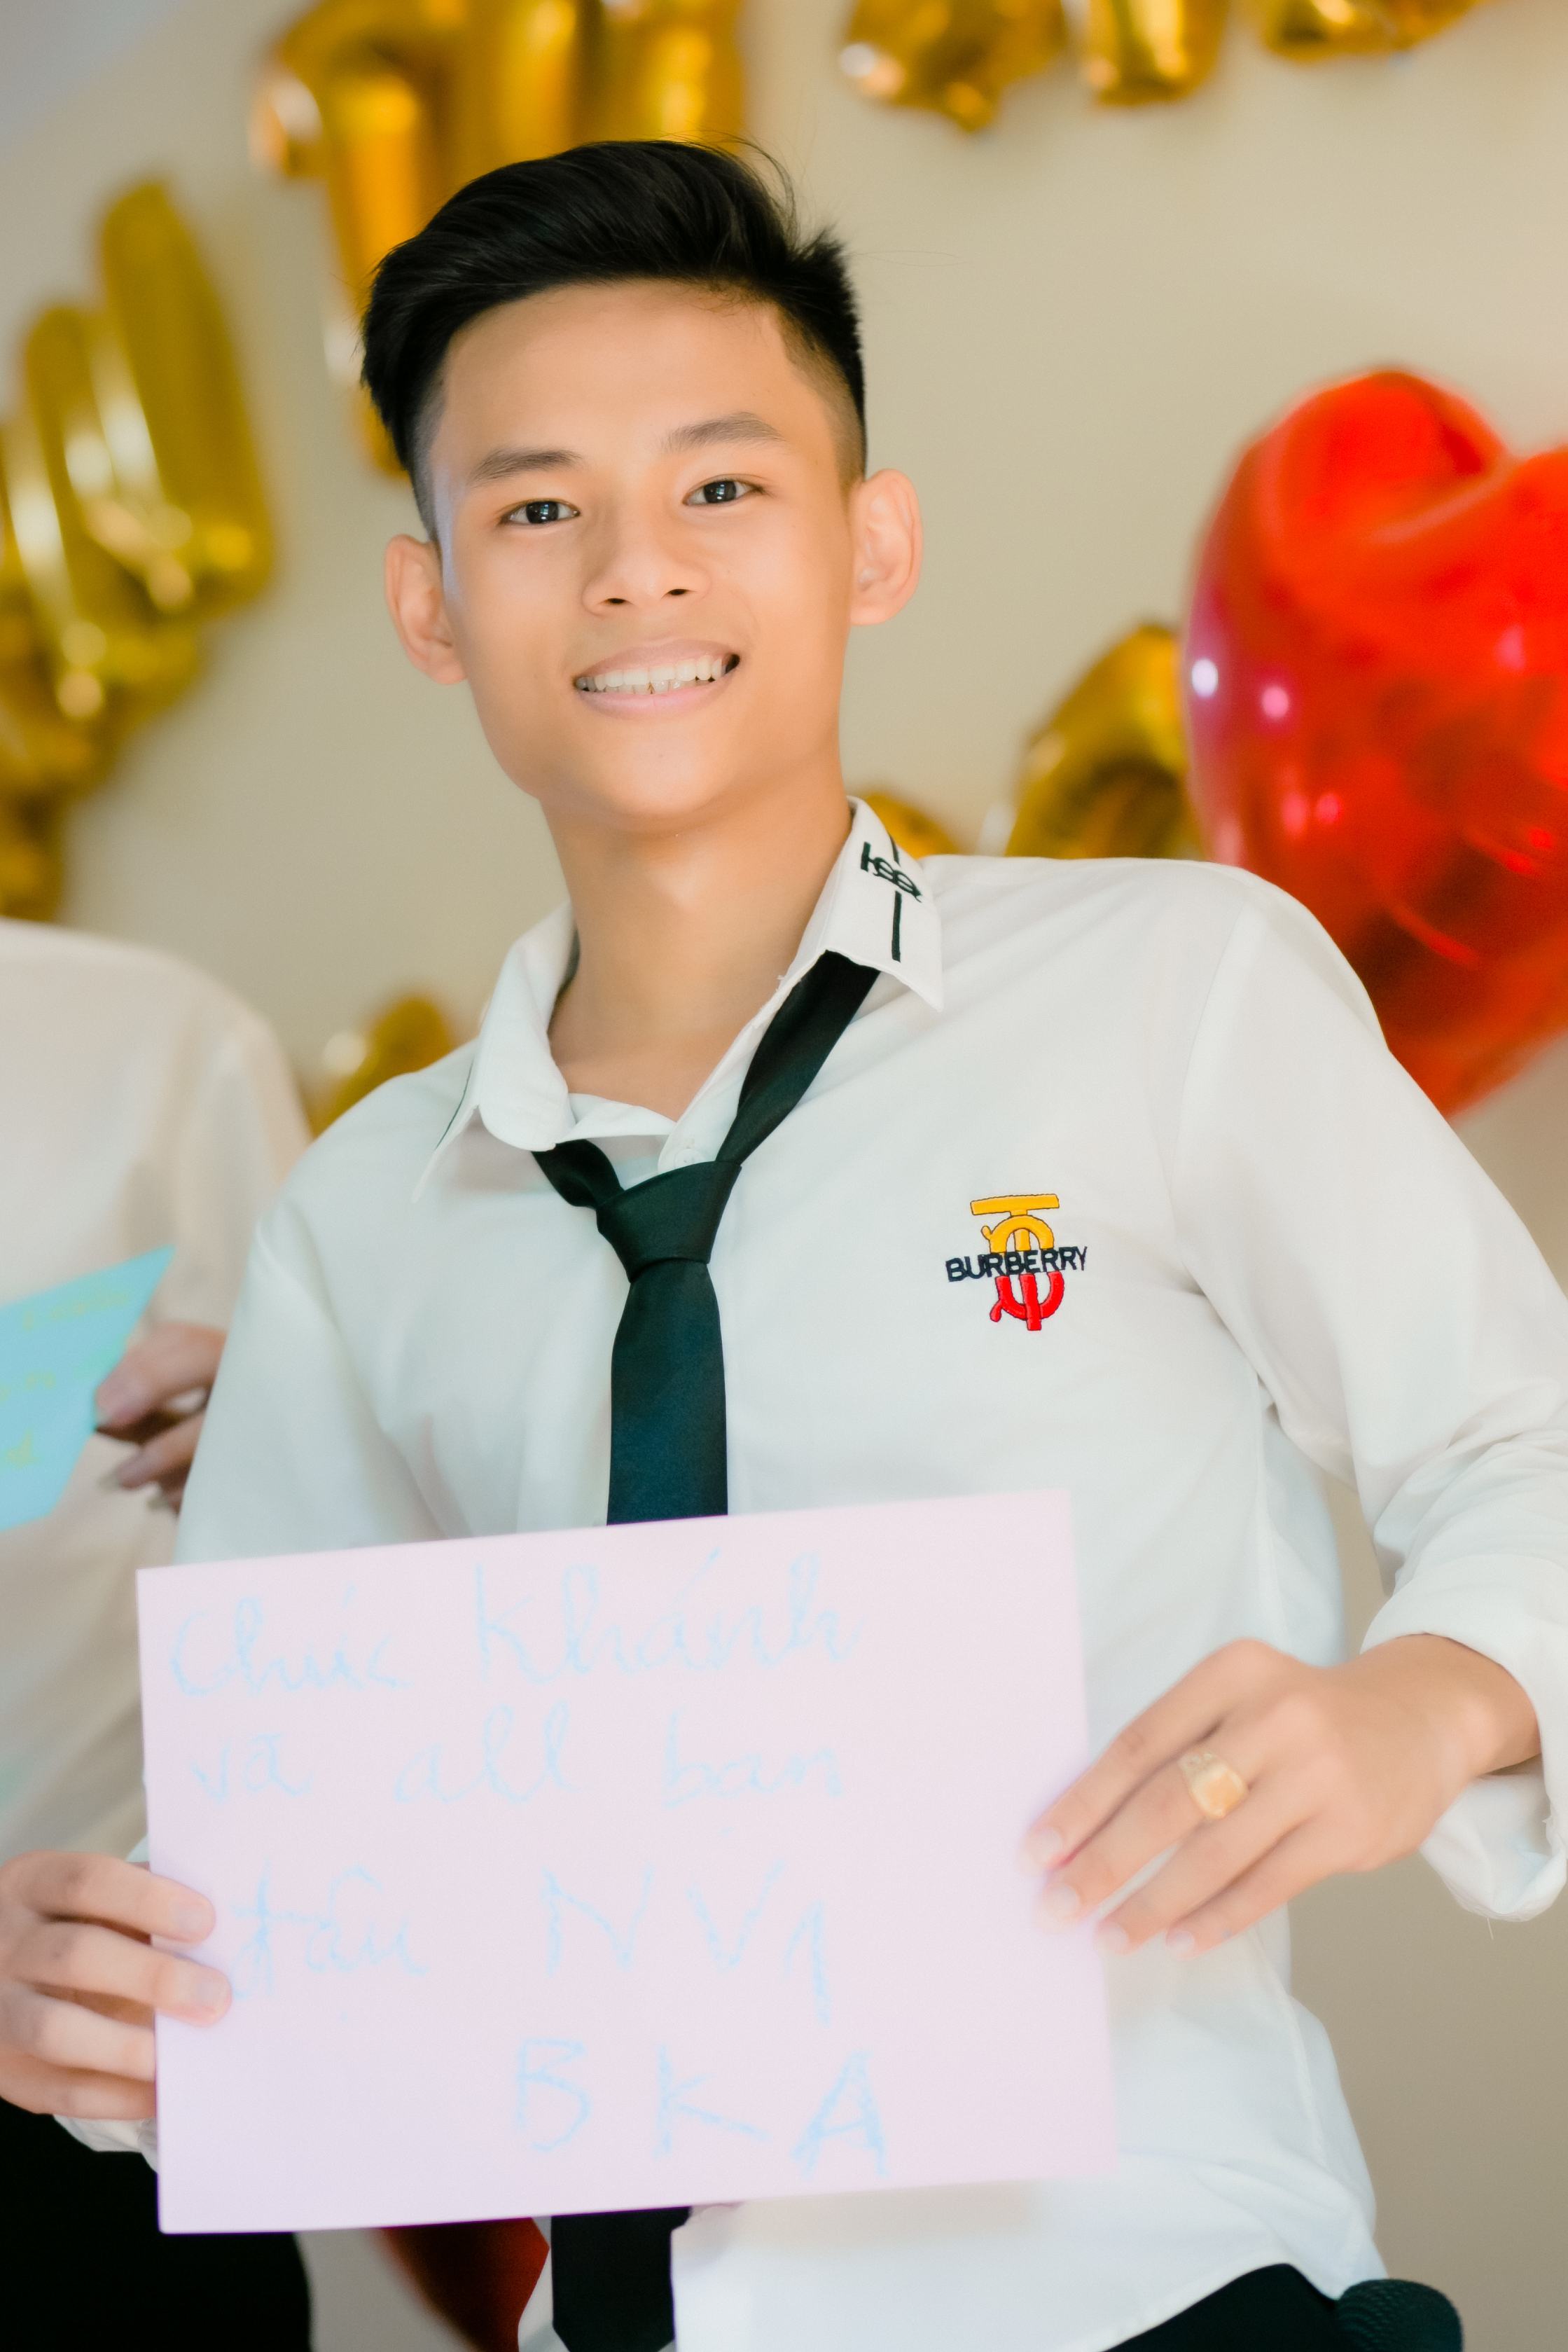 BURBERRY
Chúc Khánh
và all bạn
đậu NV1
BKA